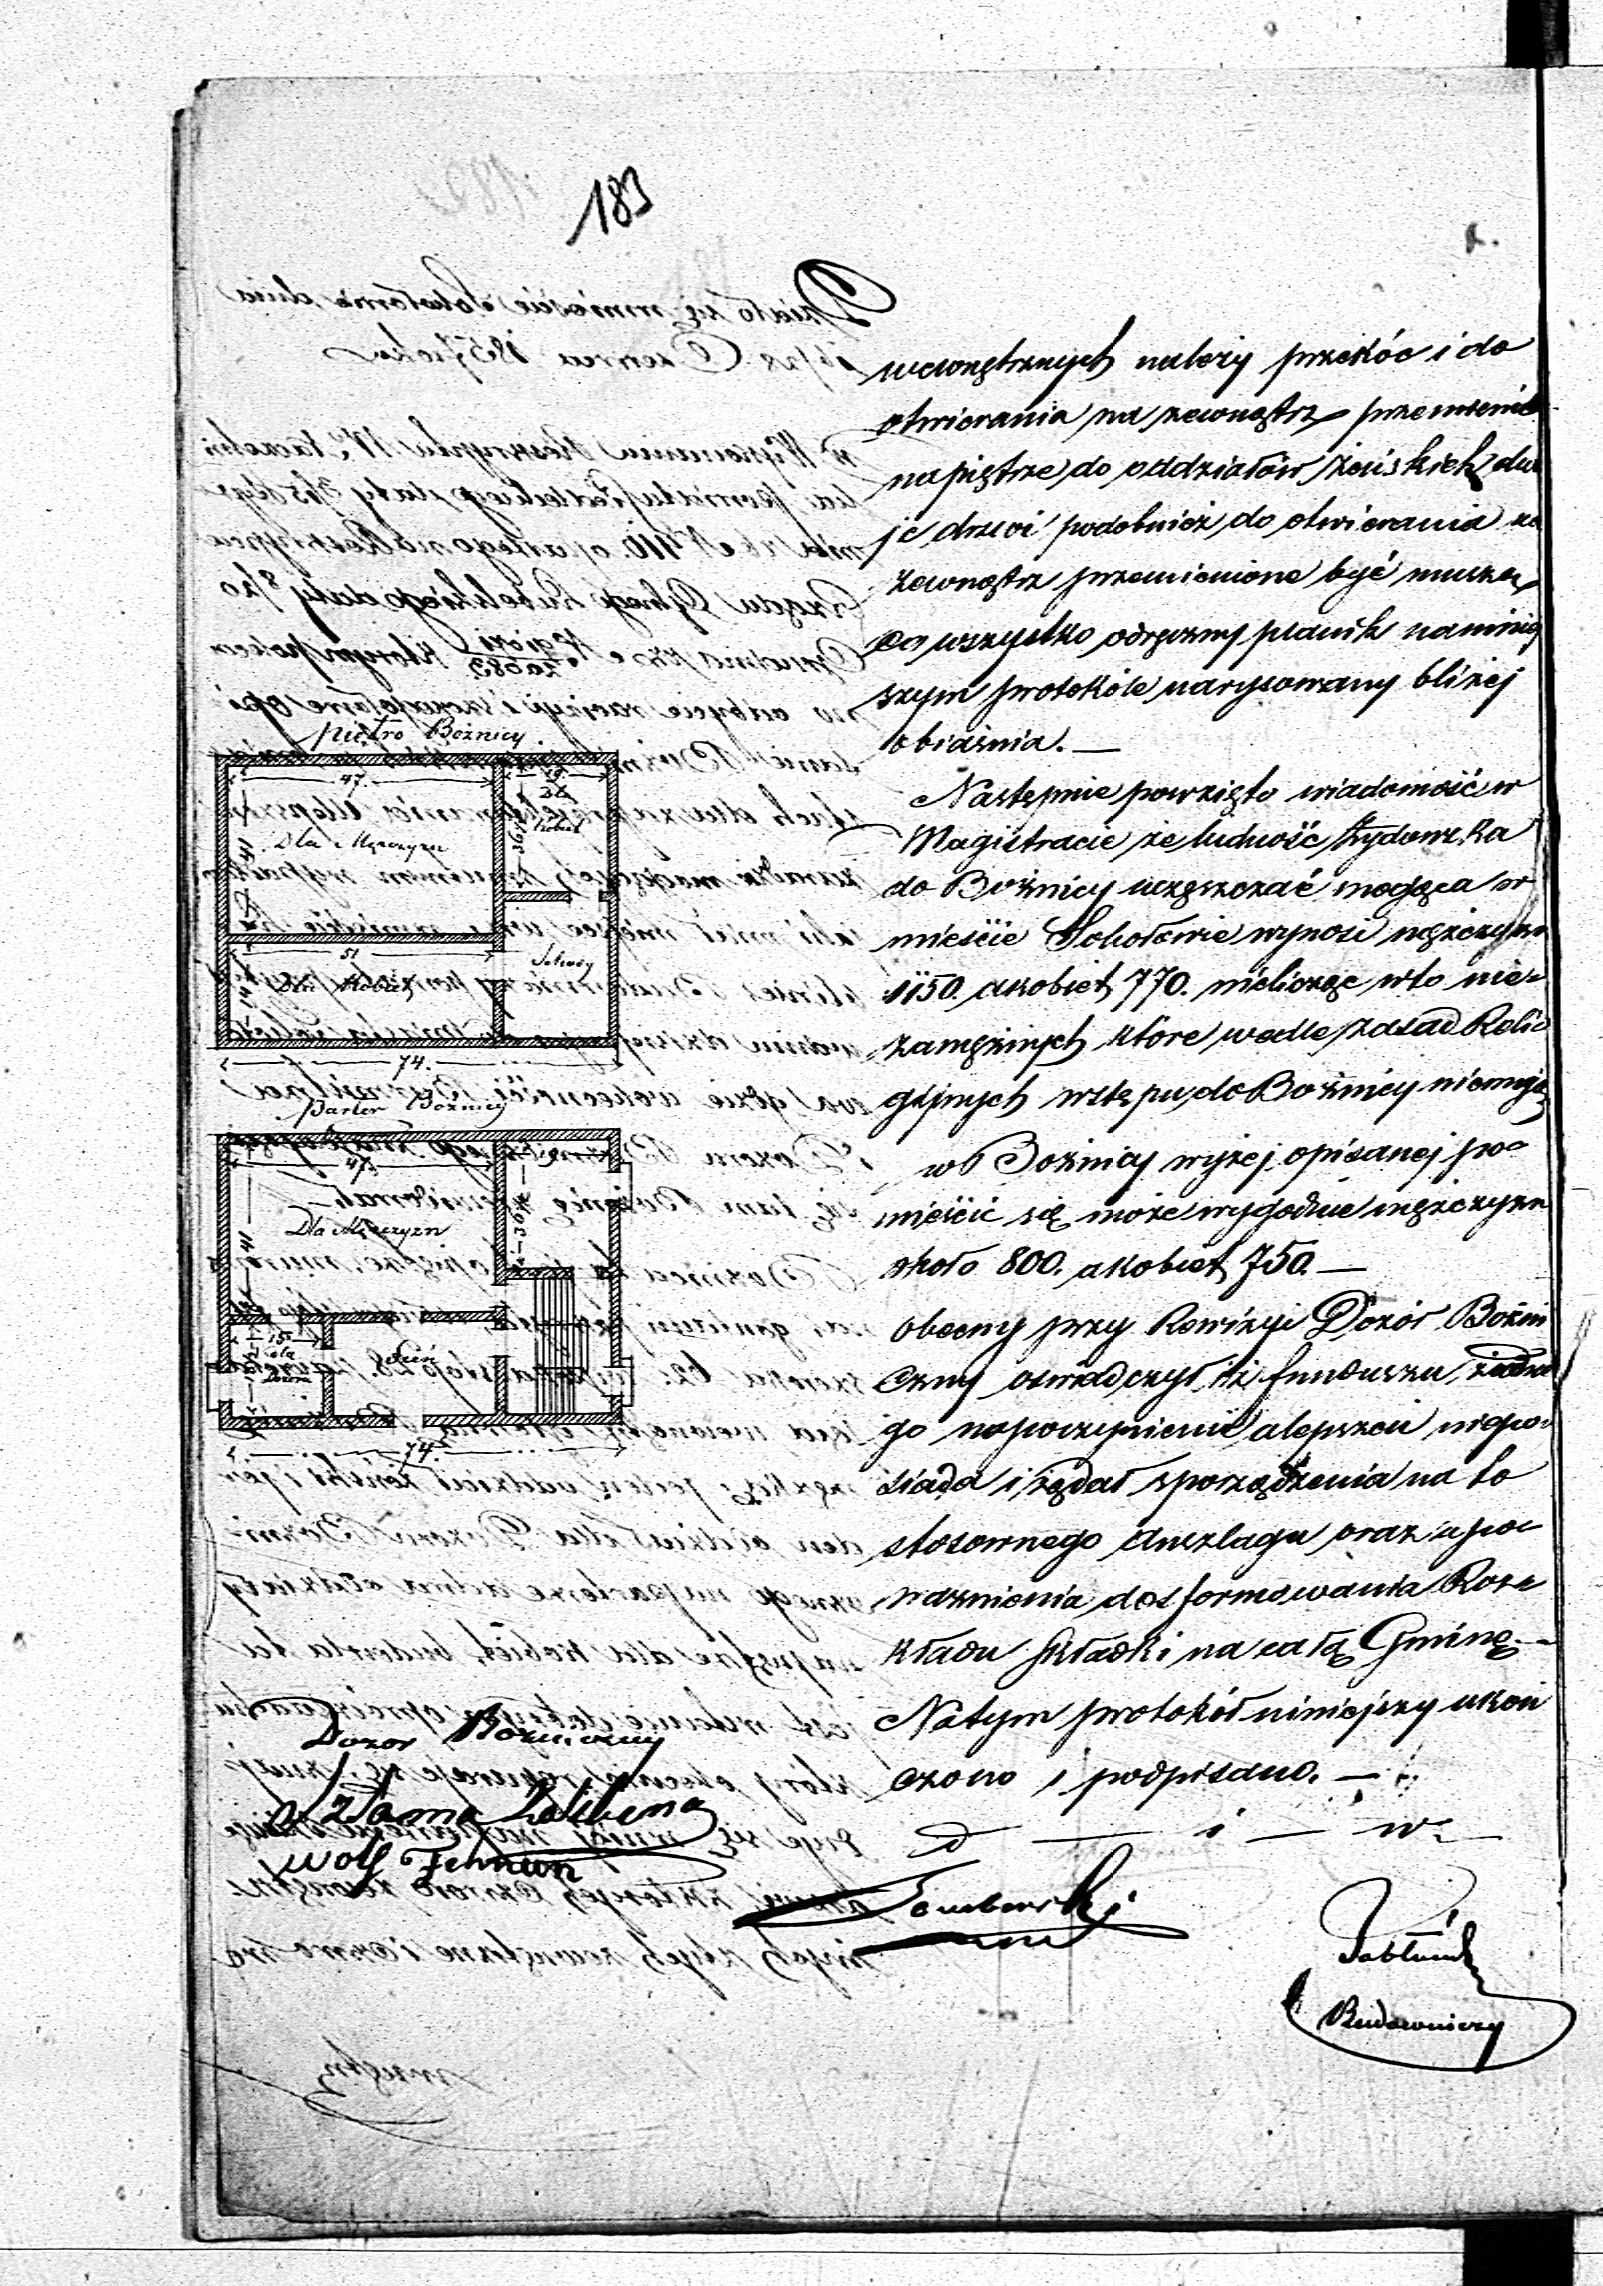 183
wewnętrznych należy przekóć i do
otwierania na zewnątrz przemienić
na piętrze do oddziałów żeńskich dwo
je drzwi podobnież do otwierania na
zewnątrz przemienione być muszą,
co wszystko odręczny planik na niniej
szym protokóle narysowany bliżej
obiaśnia. —
Następnie powzięto wiadomość w
Magistracie że ludność Żydowska
do Bożnicy uczęszczać mogąca w
mieście Sokołowie wynosi mężczyzn
1150. a kobiet 770. nielicząc w to nie=
zamężnych które wedle zasad Reli=
gijnych wstępu do Bożnicy niemają
w Bożnicy wyżej opisanej po=
mieścić się może wygodnie mężczyzn
około 800. a kobiet 750. —
obecny przy Rewizyi Dozór Bożni
czny oświadczył iż funduszu żadne
go na poczynienie ulepszeń niepo=
siada i żądał sporządzenia na to
stosownego anszlagu oraz upo=
ważnienia do sformowania Roz=
kładu składki na całą Gminę. —
Natym protokół niniejszy ukoń
czono i podpisano. —
piętro Bożnicy
47.
19.
41
Dla Mężczyzn
36
Schody
51
Dla Kobiet
74.
Parter Bożnicy
47.
19
36
41
Dla Mężczyzn
15
Sień
74.
Dozor Bożniczny
Wolf
Budowniczy